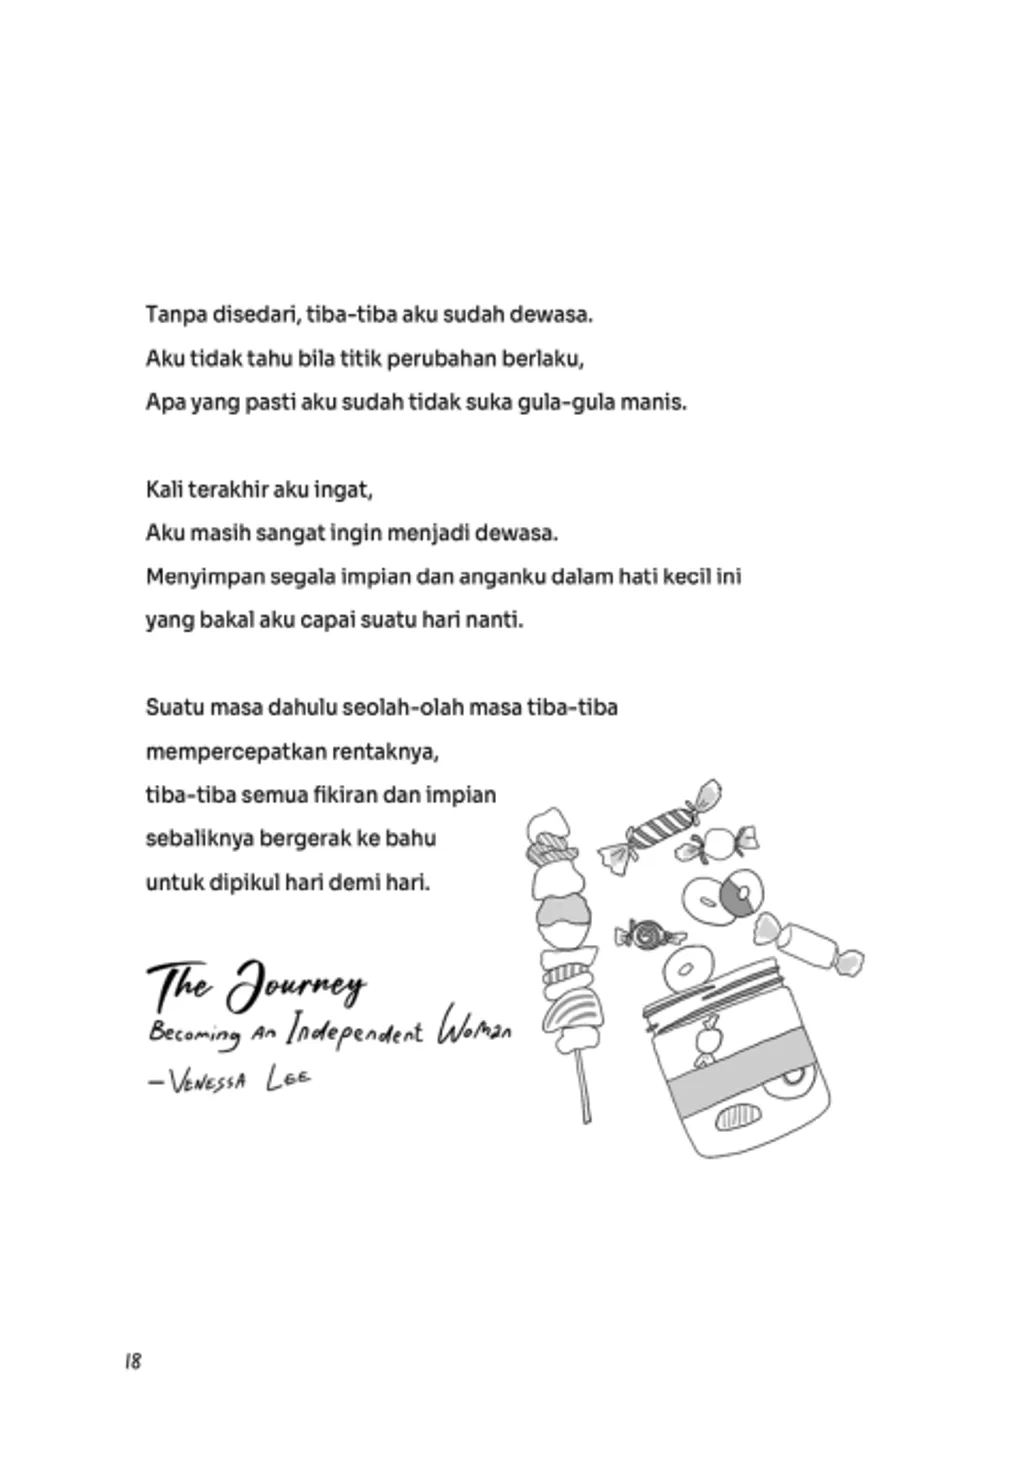 Tanpa disedari, tiba-tiba aku sudah dewasa.
Aku tidak tahu bila titik perubahan berlaku,
Apa yang pasti aku sudah tidak suka gula-gula manis.
Kali terakhir aku ingat,
Aku masih sangat ingin menjadi dewasa.
Menyimpan segala impian dan anganku dalam hati kecil ini
yang bakal aku capai suatu hari nanti.
Suatu masa dahulu seolah-olah masa tiba-tiba
mempercepatkan rentaknya,
tiba-tiba semua fikiran dan impian
sebaliknya bergerak ke bahu
untuk dipikul hari demi hari.
The Journey
Becoming An Independent Woman
— Venessa Lee
18